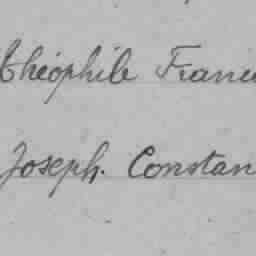 Théophile Franc
Joseph. Constan